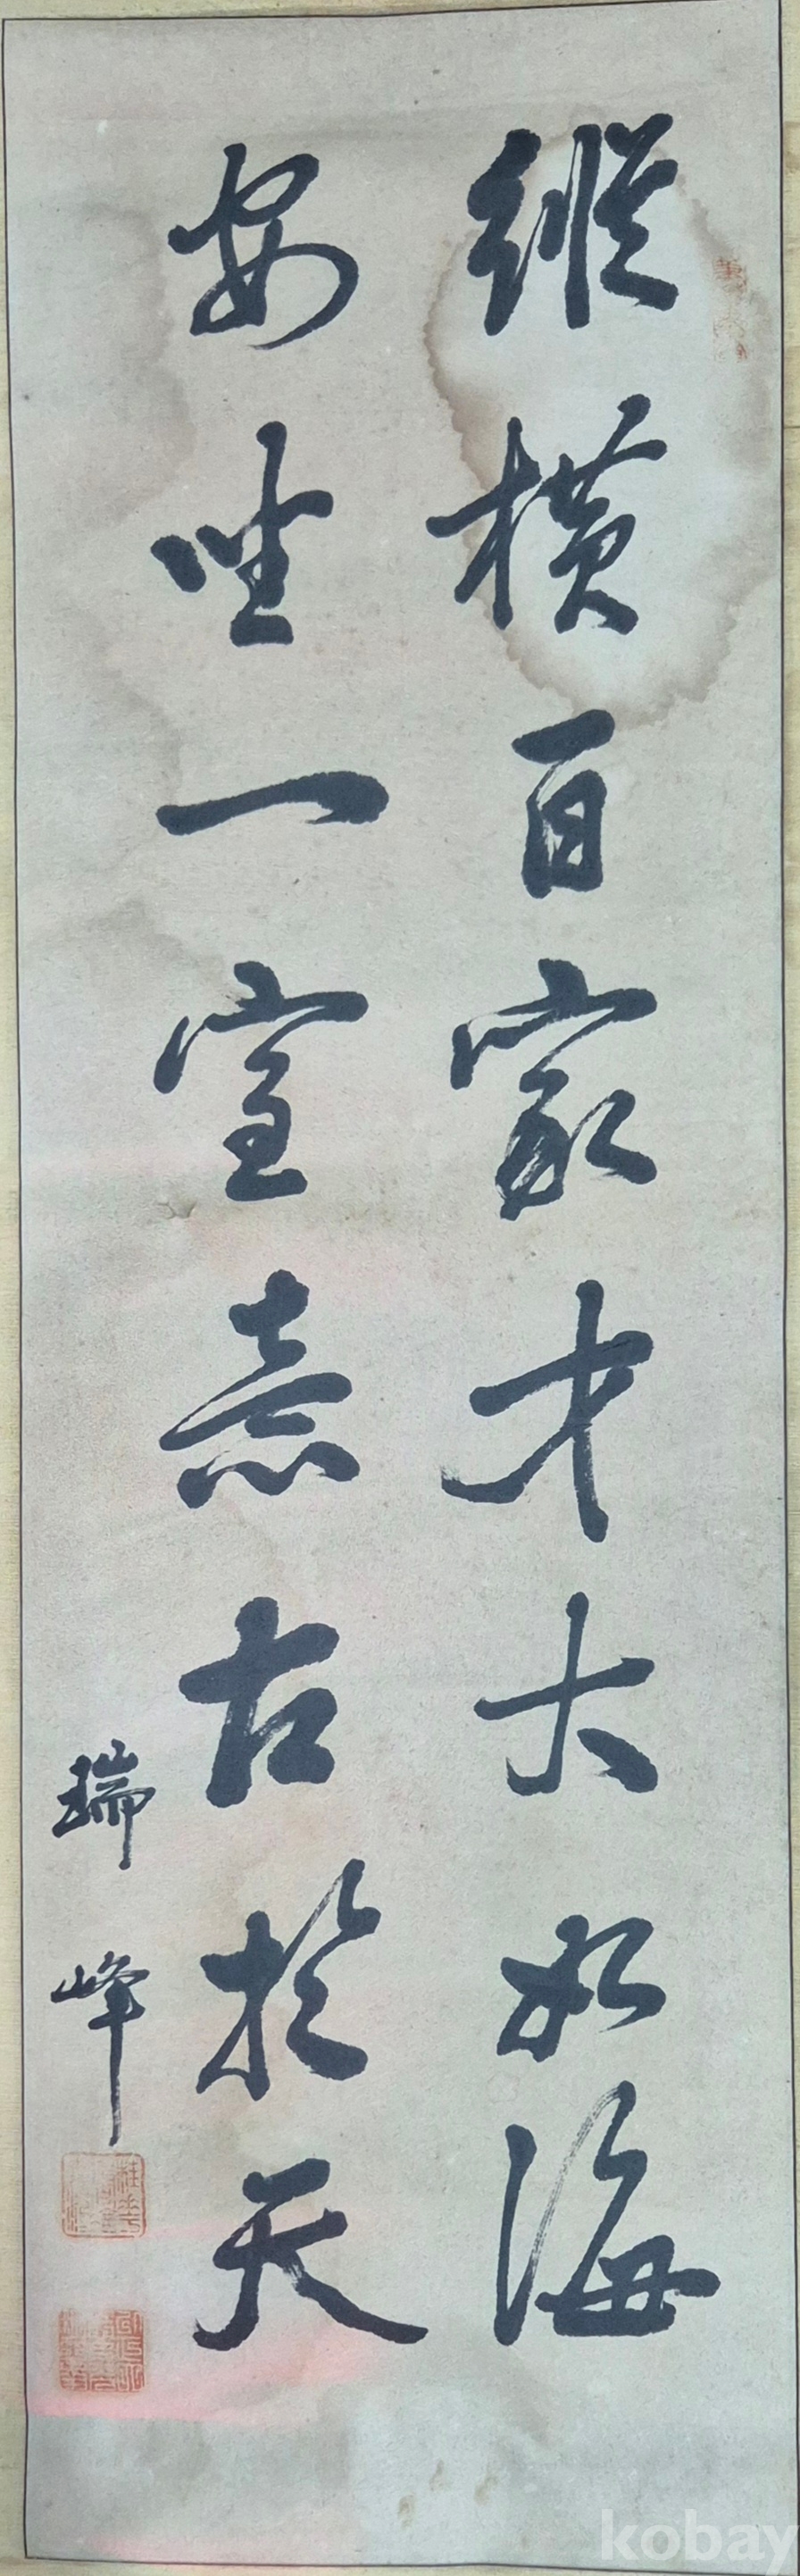 縱橫百家才大如海
安坐一室意古於天
瑞峰
kobay